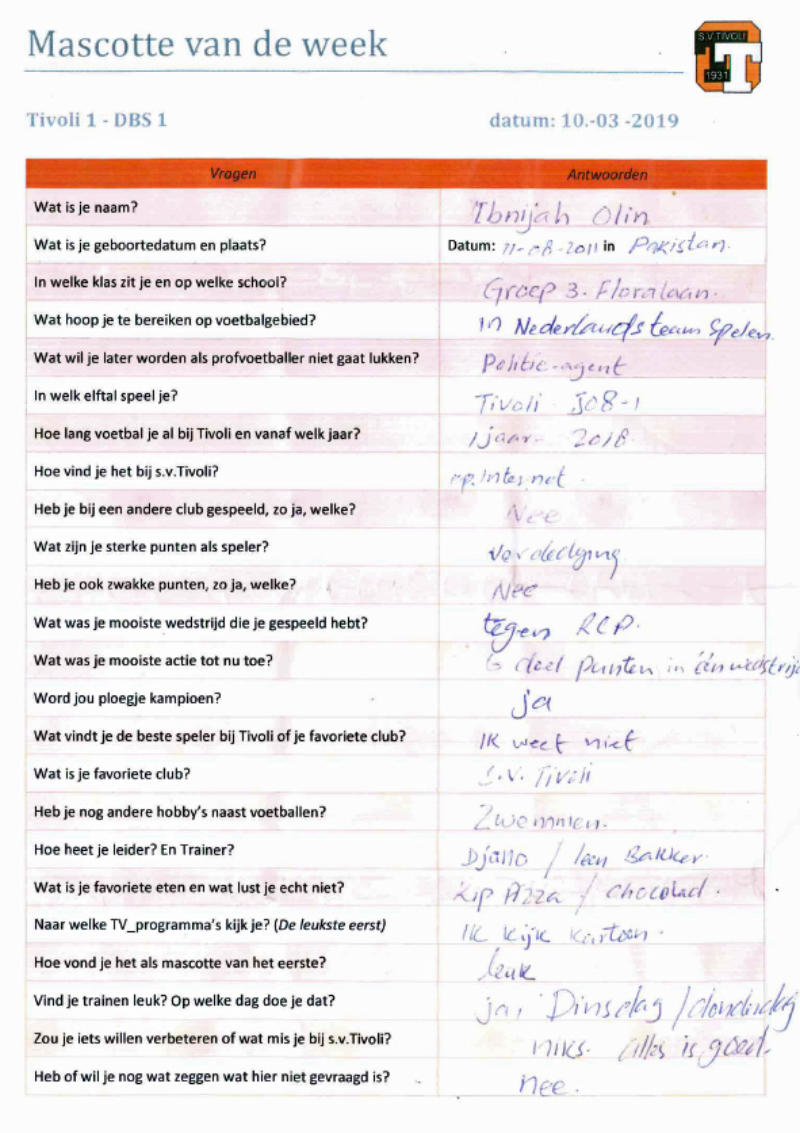 Mascotte van de week
S.V.TIVOLI
1931
Tivoli 1 - DBS 1 datum: 10.-03 -2019
Vragen Antwoorden
Wat is je naam? Ibnijah Olin
Wat is je geboortedatum en plaats? Datum: 11-08-2011 in Pakistan.
In welke klas zit je en op welke school? Groep 3. Floralaan.
Wat hoop je te bereiken op voetbalgebied? in Nederlands team Spelen.
Wat wil je later worden als profvoetballer niet gaat lukken? Politie-agent
In welk elftal speel je? Tivoli JO8-1
Hoe lang voetbal je al bij Tivoli en vanaf welk jaar? 1 jaar- 2018.
Hoe vind je het bij s.v.Tivoli? op. Internet.
Heb je bij een andere club gespeeld, zo ja, welke? Nee
Wat zijn je sterke punten als speler?
Heb je ook zwakke punten, zo ja, welke? Nee
Wat was je mooiste wedstrijd die je gespeeld hebt? tegen RCP.
Wat was je mooiste actie tot nu toe? 6 doel punten in één wedstrijd
Word jou ploegje kampioen? ja
Wat vindt je de beste speler bij Tivoli of je favoriete club? IK weet niet
Wat is je favoriete club? S.V. Tivoli
Heb je nog andere hobby's naast voetballen? Zwemmen.
Hoe heet je leider? En Trainer? / leen Bakker.
Wat is je favoriete eten en wat lust je echt niet? Kip Pizza / chocolad.
Naar welke TV_programma's kijk je? (De leukste eerst) IK kijk kartoon.
Hoe vond je het als mascotte van het eerste? leuk
Vind je trainen leuk? Op welke dag doe je dat? ja, Dinsdag / donderdag
Zou je iets willen verbeteren of wat mis je bij s.v.Tivoli? niks. alles is goed.
Heb of wil je nog wat zeggen wat hier niet gevraagd is? nee.